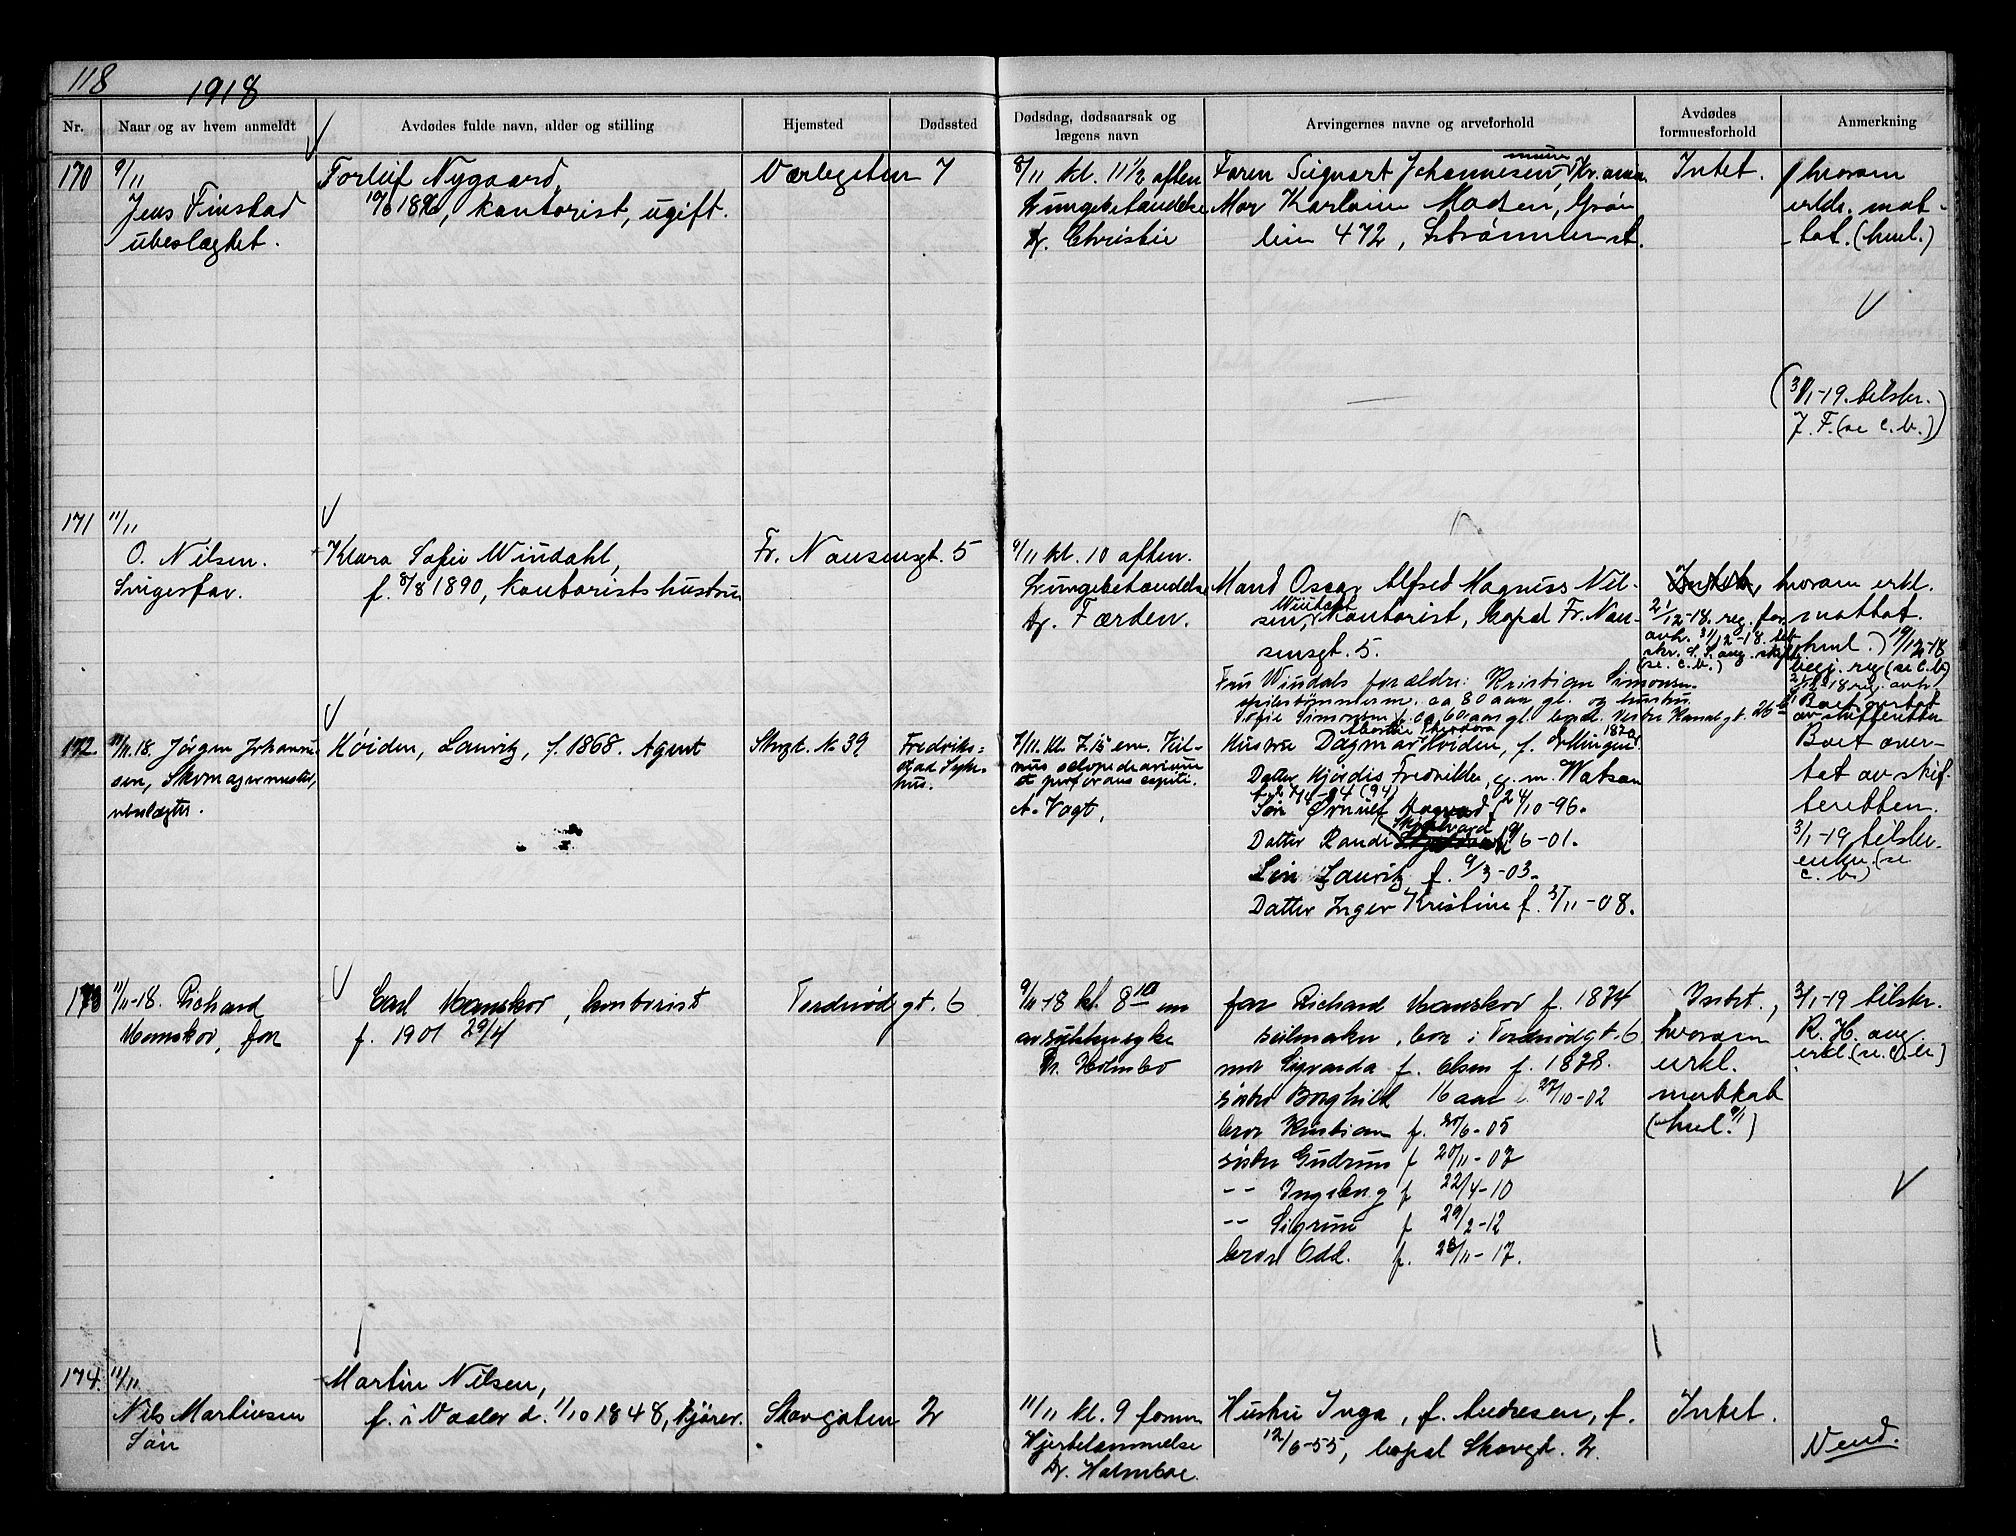 118
1918
Nr.
Naar og av hvem anmeldt
Avdødes fulde navn, alder og stilling
Hjemsted
Dødssted
Dødsdag, dødsaarsak og
lægens navn
Arvingernes navne og arveforhold
Avdødes
formuesforhold
Anmerkning
170
9/11
Jens Finstad
ubeslægtet.
Torleif Nygaard,
1896, kontorist, ugift.
Værkgaten 7
8/11 kl. 11 1/2 aften
Lungebetændelse
Dr. Christie
Faren Sigvart Johannesen,
Mor Karloine Madsen, Grøn
lien 472, Strømmen st.
Intet.
hvorom
erklr. mot-
tat. (hml.)
(3/1-19. tilskr.
J. F. (se c.b.))
171
11/11
O. Nilsen.
Svigerfar.
Klara Sofie Windahl,
f. 8/8 1890, kontorists hustru
Fr. Nansensgt. 5
9/11 kl. 10 aften.
Lungebetændelse
Dr. Færden.
Mand Oscar Alfred Magnus Nil-
Windahl
sen, kontorist, bopæl Fr. Nan-
sensgt. 5.
Fru Windals forældre: Kristian Simonsen
ca 80 aar gl. og hustru
Sofie Simonsen f. ca 60 aar gl. boende Vestre Kanalgt. 26
Intet,
21/12-18. reg. for
avh. 31/12-18. til
(se. c.b.)
hvorom erkl.
mottat.
hml.) 19/12-18
begj. reg (se c.b)
Boet overtat
av skifteretten
172
11/11.18. Jörgen Johannes
sen, Skomagermester,
ubeslægtet.
Höiden, Lauritz, f. 1868. Agent
Strgt. No 39
Fredriks=
stad Syke-
hus.
7/11. kl. 7.15 em.
A. Vogt,
Hustru Dagmar Höiden, f. 1870
Datter Hjördis Fredrikke, g. m. Watson
Sön Ørnulf 24/10-96.
Datter Randi 9/6-01.
Sön Lauritz f. 9/3-03.
Datter Inger Kristine f. 5/11-08.
Boet over-
tat av skif-
teretten.
3/1-19 tilskr.
enken. (se
c. b.)
173
11/11-18. Richard
Homskov, far
Carl Homskov, kontorist
f. 1901 29/4
Tordenskjoldgt. 6
9/11-18 kl. 8 10 em
av sukkersyke
Dr. Holmbo
far Richard Homskov f. 1874
seilmaker, bor i gt. 6
mor Sigvarda f. Olsen f. 1878.
søster Borghild 16 aar 27/10-02
bror Kristian f. 6-05
søster Gudrun f 20/11-07
-- Ingeborg f 22/4-10
-- Sigrun f 29/2-12
bror Odd. f. 28/11-17.
Intet,
hvorom
erkl.
mottat
(hml. 9/1)
3/1-19 tilskr.
R. H. ang.
erkl. (se. c. b.)
174.
11/11.
Nils Martinsen
Sön
Martin Nilsen,
f. i Vaaler d. 1/10 1848, kjører.
Skovgaten 2
11/11 kl. 9 form.
Hjertelammelse
Dr. Holmboe.
Hustru Inga, f. Andresen, f.
12/6-55, bopæl Skovgt. 2.
Intet.
Vend.